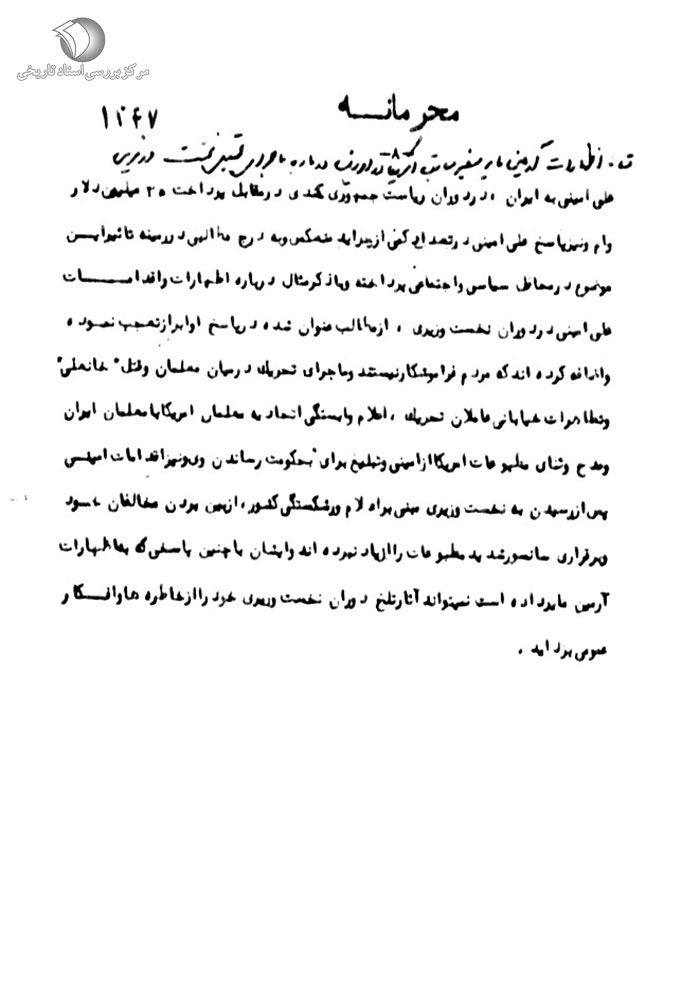 مرکز بررسی اسناد تاریخی
محرمانه
۱۲۴۷
اظهارات آرمین مایر سفیر سابق آمریکا در درباره ماجرای نخست وزیری
علی امینی به ایران ، در دوران ریاست جمهوری کندی در مقابل پرداخت ۳۵ میلیون دلار
وام ونیز پاسخ علی امینی در تعدادی کثی از جراید منعکس وبه درج مطالبی در زمینه تاثیر ایـن
موضوع در محافل سیاسی واجتماعی پرداخته وباذکر مثال درباره اظهارات واقدامـــات
علی امینی در دوران نخست وزیری ، از مطالب عنوان شده در پاسخ او ابراز تعجب نموده
واضافه کرده اند که مردم فراموشکار نیستند وماجرای تحریک در میان معلمان وقتل "خانعلی"
وتظاهرات خیابانی عاملان تحریک ، اعلام وابستگی اتحادیه معلمان امریکا با معلمان ایران
ومدح وثنای مطبوعات امریکا از امینی وتبلیغ برای "بحکومت رساندن وی ونیز اقدامات امینـی
پس از رسیدن به نخست وزیری مبنی براعلام ورشکستگی کشور ، ازبین بردن مخالفان خـود
وبرقراری سانسور شدید مطبوعات را ازیاد نبرده اند وایشان با چنین پاسخی که به اظهارات
آرمین مایر داده است نمیتواند آثار تلخ دوران نخست وزیری خود را از خاطره ها وافـکار
عمومی بزداید .